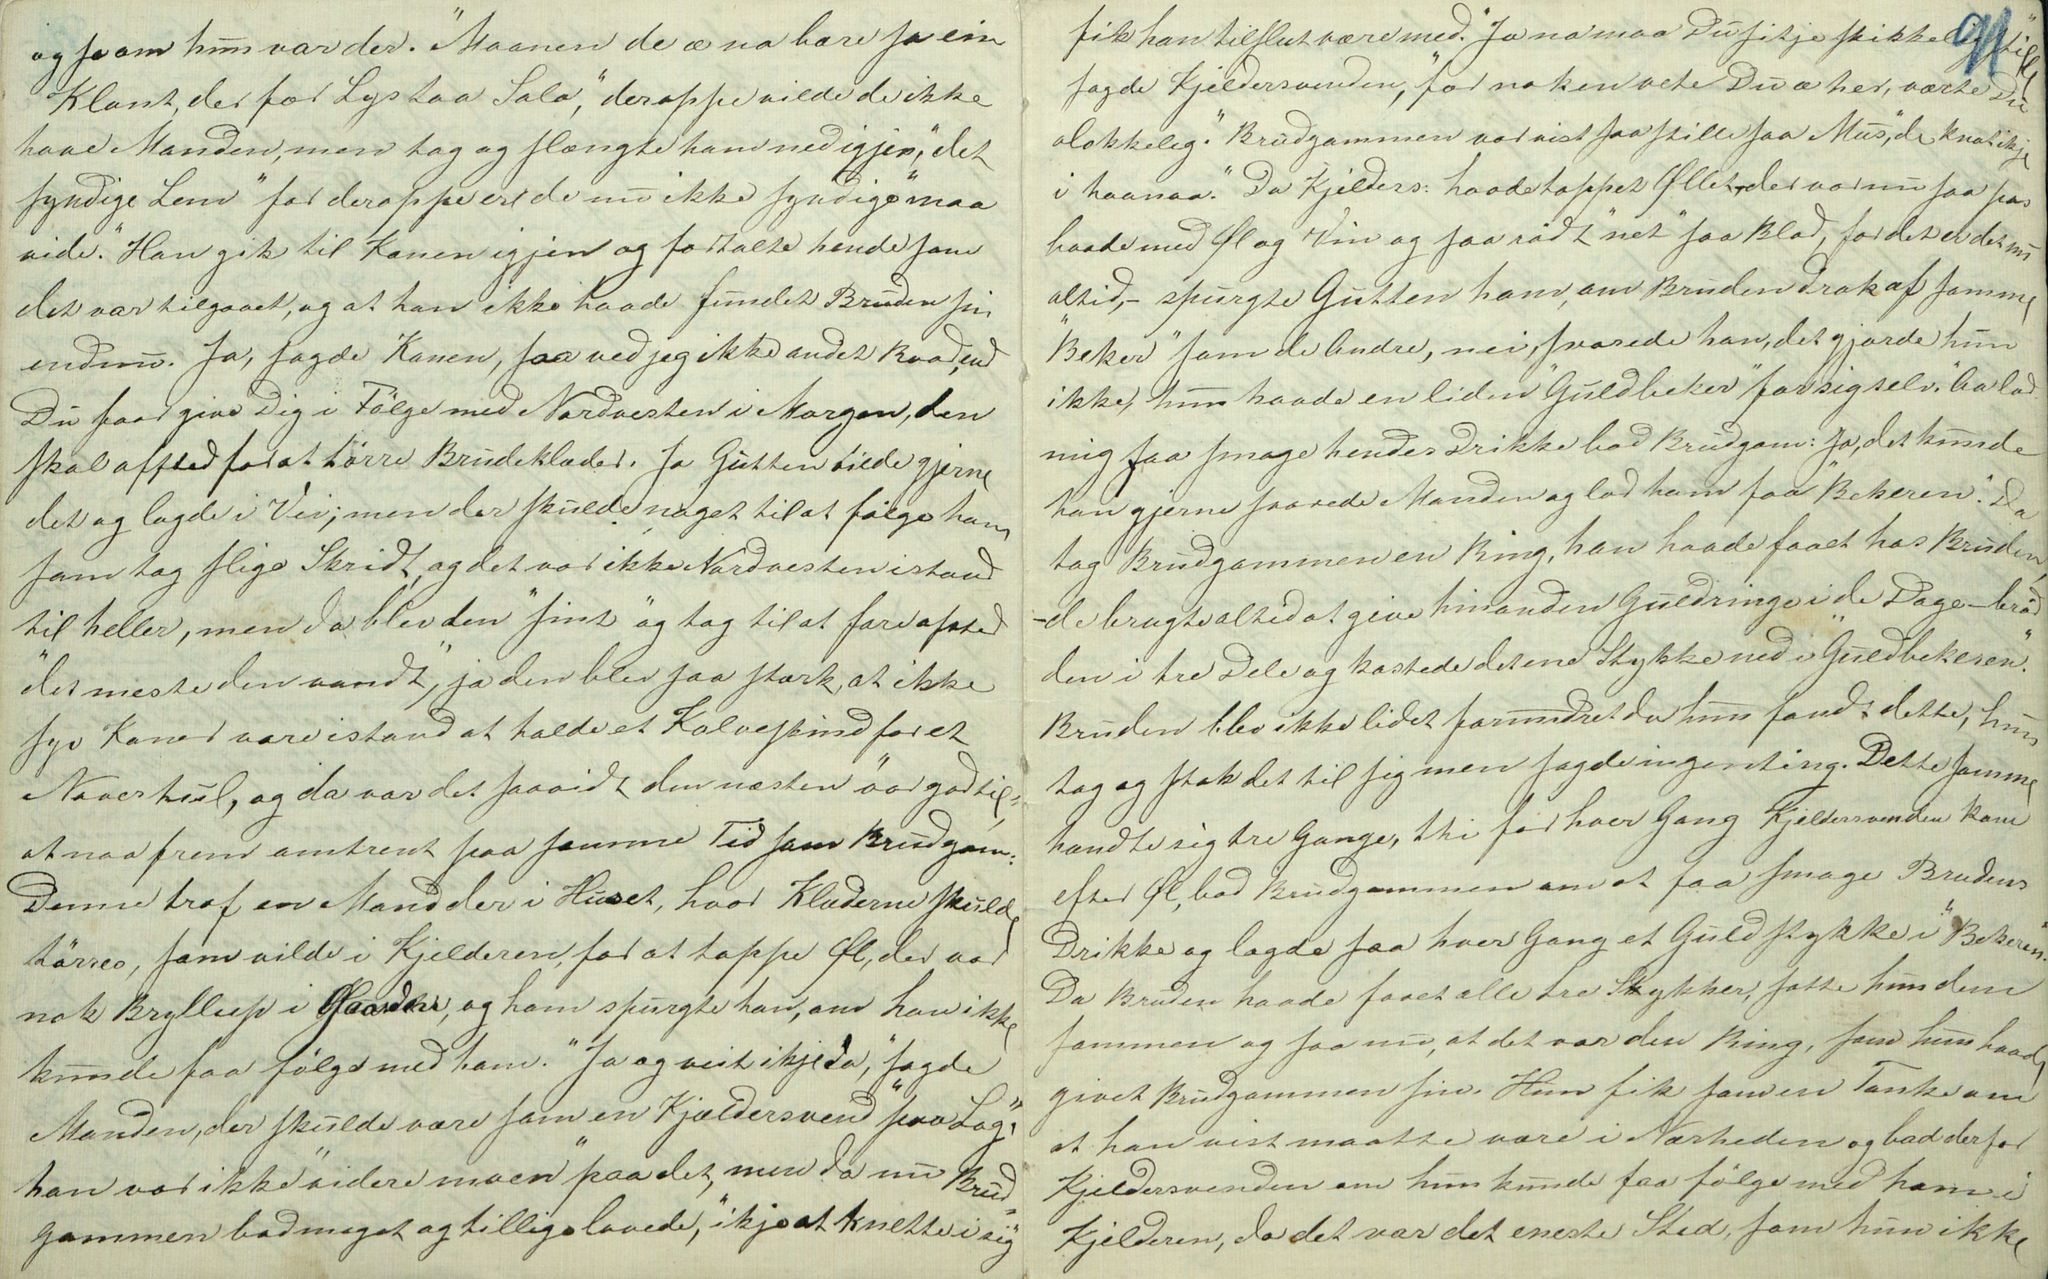 og som hun var der. "Maanen de æ na bare so ein
Klant, der fær Lys taa Sola," deroppe vilde de ikke
have Manden, men tog og slængte ham ned igjen, "det
syndige Lem" for deroppe er de nu ikke syndige "maa
vide." Han gik til Konen igjen og fortalte hende som
det var tilgaaet, og at han ikke havde fundet Bruden sin
endnu. Ja, sagde Konen, saa ved jeg ikke andet Raad, end
Du faar give Dig i Fölge med Nordvesten i Morgen, den
skal afsted for at törre Brudeklæder. Ja Gutten vilde gjerne
det og lagde i Vei; men der skulde noget til at fölge ham
som tog slige Skridt, og det var ikke Nordvesten istand
til heller, men da blev den "sint" og tog til at fare afsted
"det meste den vandt", ja den blev saa stærk, at ikke
syv Koner vare istand at holde et Kalveskind for et
Naverhul, og da var det saavidt den næsten var god til
at naa frem omtrent paa samme Tid som Brudgom:
Denne traf en Mand der i Huset, hvor Klæderne skulde
törres, som vilde i Kjelderen, for at tappe Øl, der var
nok Bryllup i Gaarden, og ham spurgte han, om han ikke
kunde faa fölge med ham. "Ja og veit ikje da," sagde
Manden, der skulde være som en Kjældersvend "paa Lag",
han var ikke "videre moen" paa det, men da nu Brud-
gommen bad meget og tillige lovede, "ikje at knette i sig"
fik han tilslut være med. "Ja no maa Du sitje skikkelig still"
sagde Kjeldersvenden, "for no ken vete Du æ her, værte Du
olokkeleg." Brudgommen var vist saa stille saa Mus, "de knat ikje
i haanaa." Da Kjelders: havde tappet Øllet, der var nu saa pas
baade med Øl og Vin og saa rödt "net" saa Blod, for det er det nu
altid, - spurgte Gutten ham, om Bruden drak af samme
"Beker" som de Andre, nei, svarede han, det gjorde hun
ikke, hun havde en liden "Guldbeker" for sig selv. Aa lad
mig faa smage hendes Drikke bad Brudgom: Ja, det kunde
han gjerne svarede Manden og lod ham faa "Bekeren". Da
tog Brudgommen en Ring, han havde faaet hos Bruden,
- de brugte altid at give hinanden Guldringe i de Dage - bröd
den i tre Dele og kastede det ene Stykke ned i "Guldbekeren".
Bruden blev ikke lidet forundret da hun fandt dette, hun
tog og stak det til sig men sagde ingenting. Dette samme
hændte sig tre Gange, thi for hver Gang Kjeldersvenden kom
efter Øl, bad Brudgommen om at faa smage Brudens
Drikke og lagde saa hver Gang et Guldstykke i "Bekeren".
Da Bruden havde faaet alle tre Stykker, satte hun dem
sammen og saa nu, at det var den Ring, som hun havde
givet Brudgommen sin. Hun fik som en Tanke om
at han vist maatte være i Nærheden og bad derfor
Kjeldersvenden om hun kunde faa fölge med ham i
Kjelderen, da det var det eneste Sted, som hun ikke